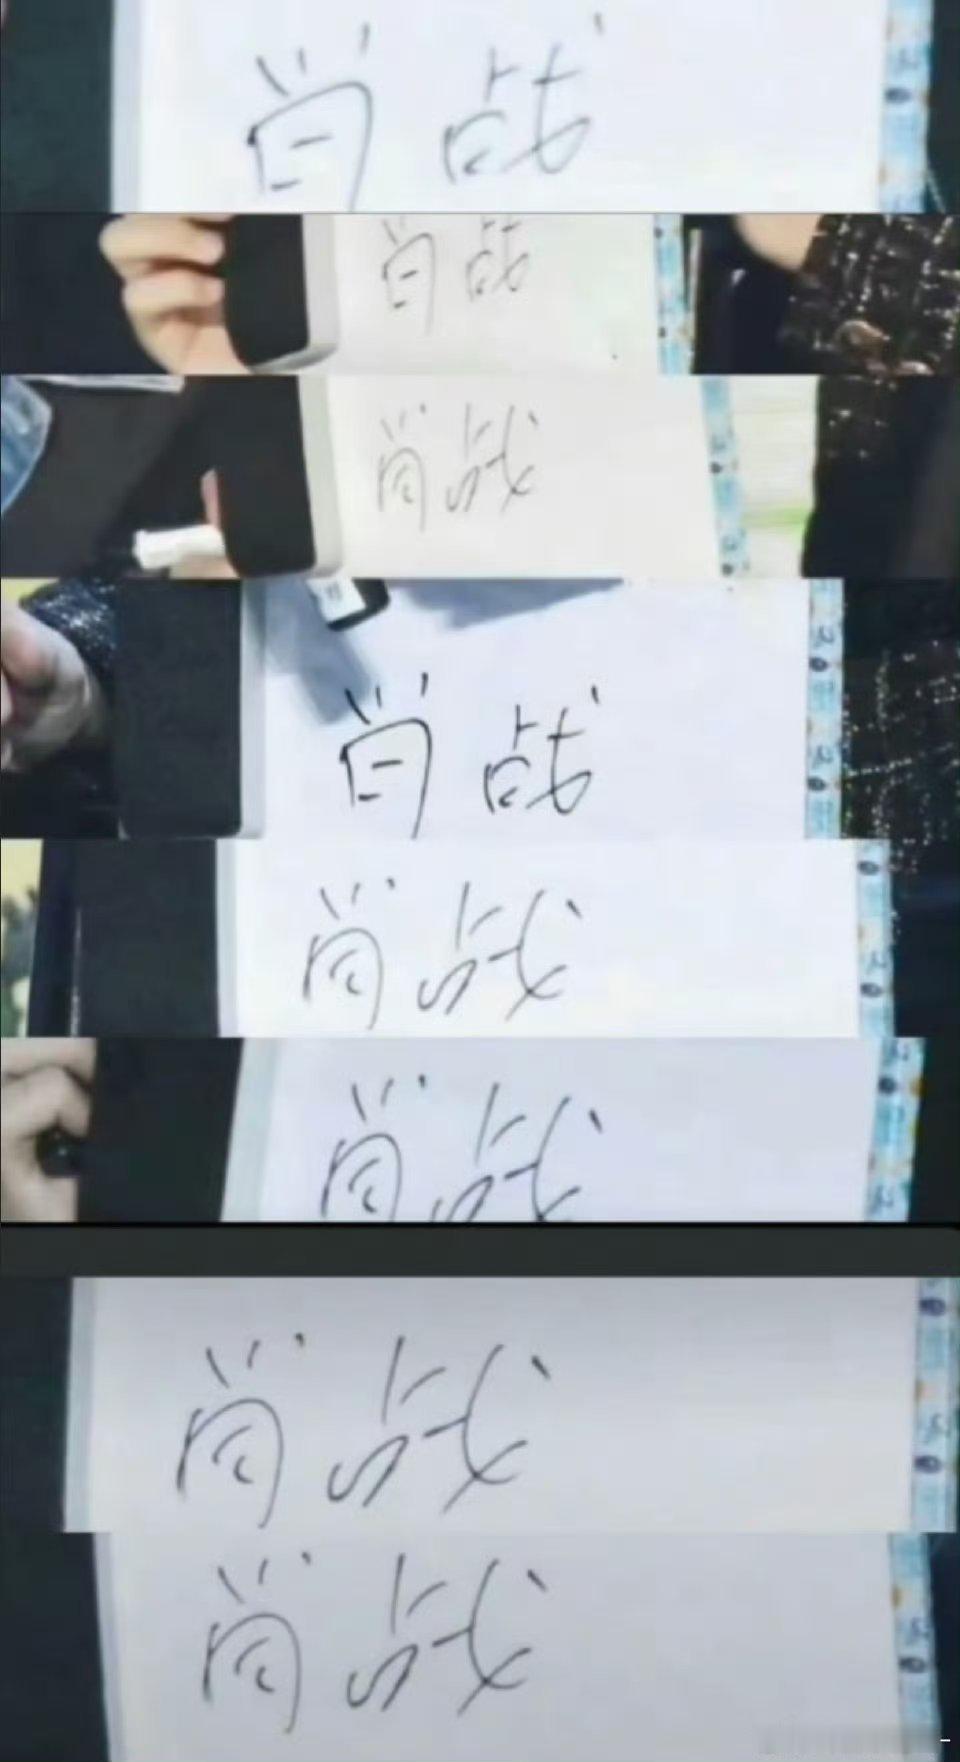 肖战
肖战
肖战
肖战
肖战
肖战
肖战
肖战